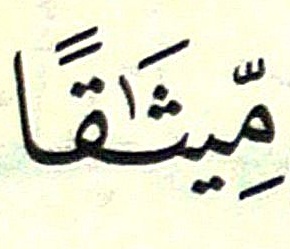 مِّيثَٰقًا